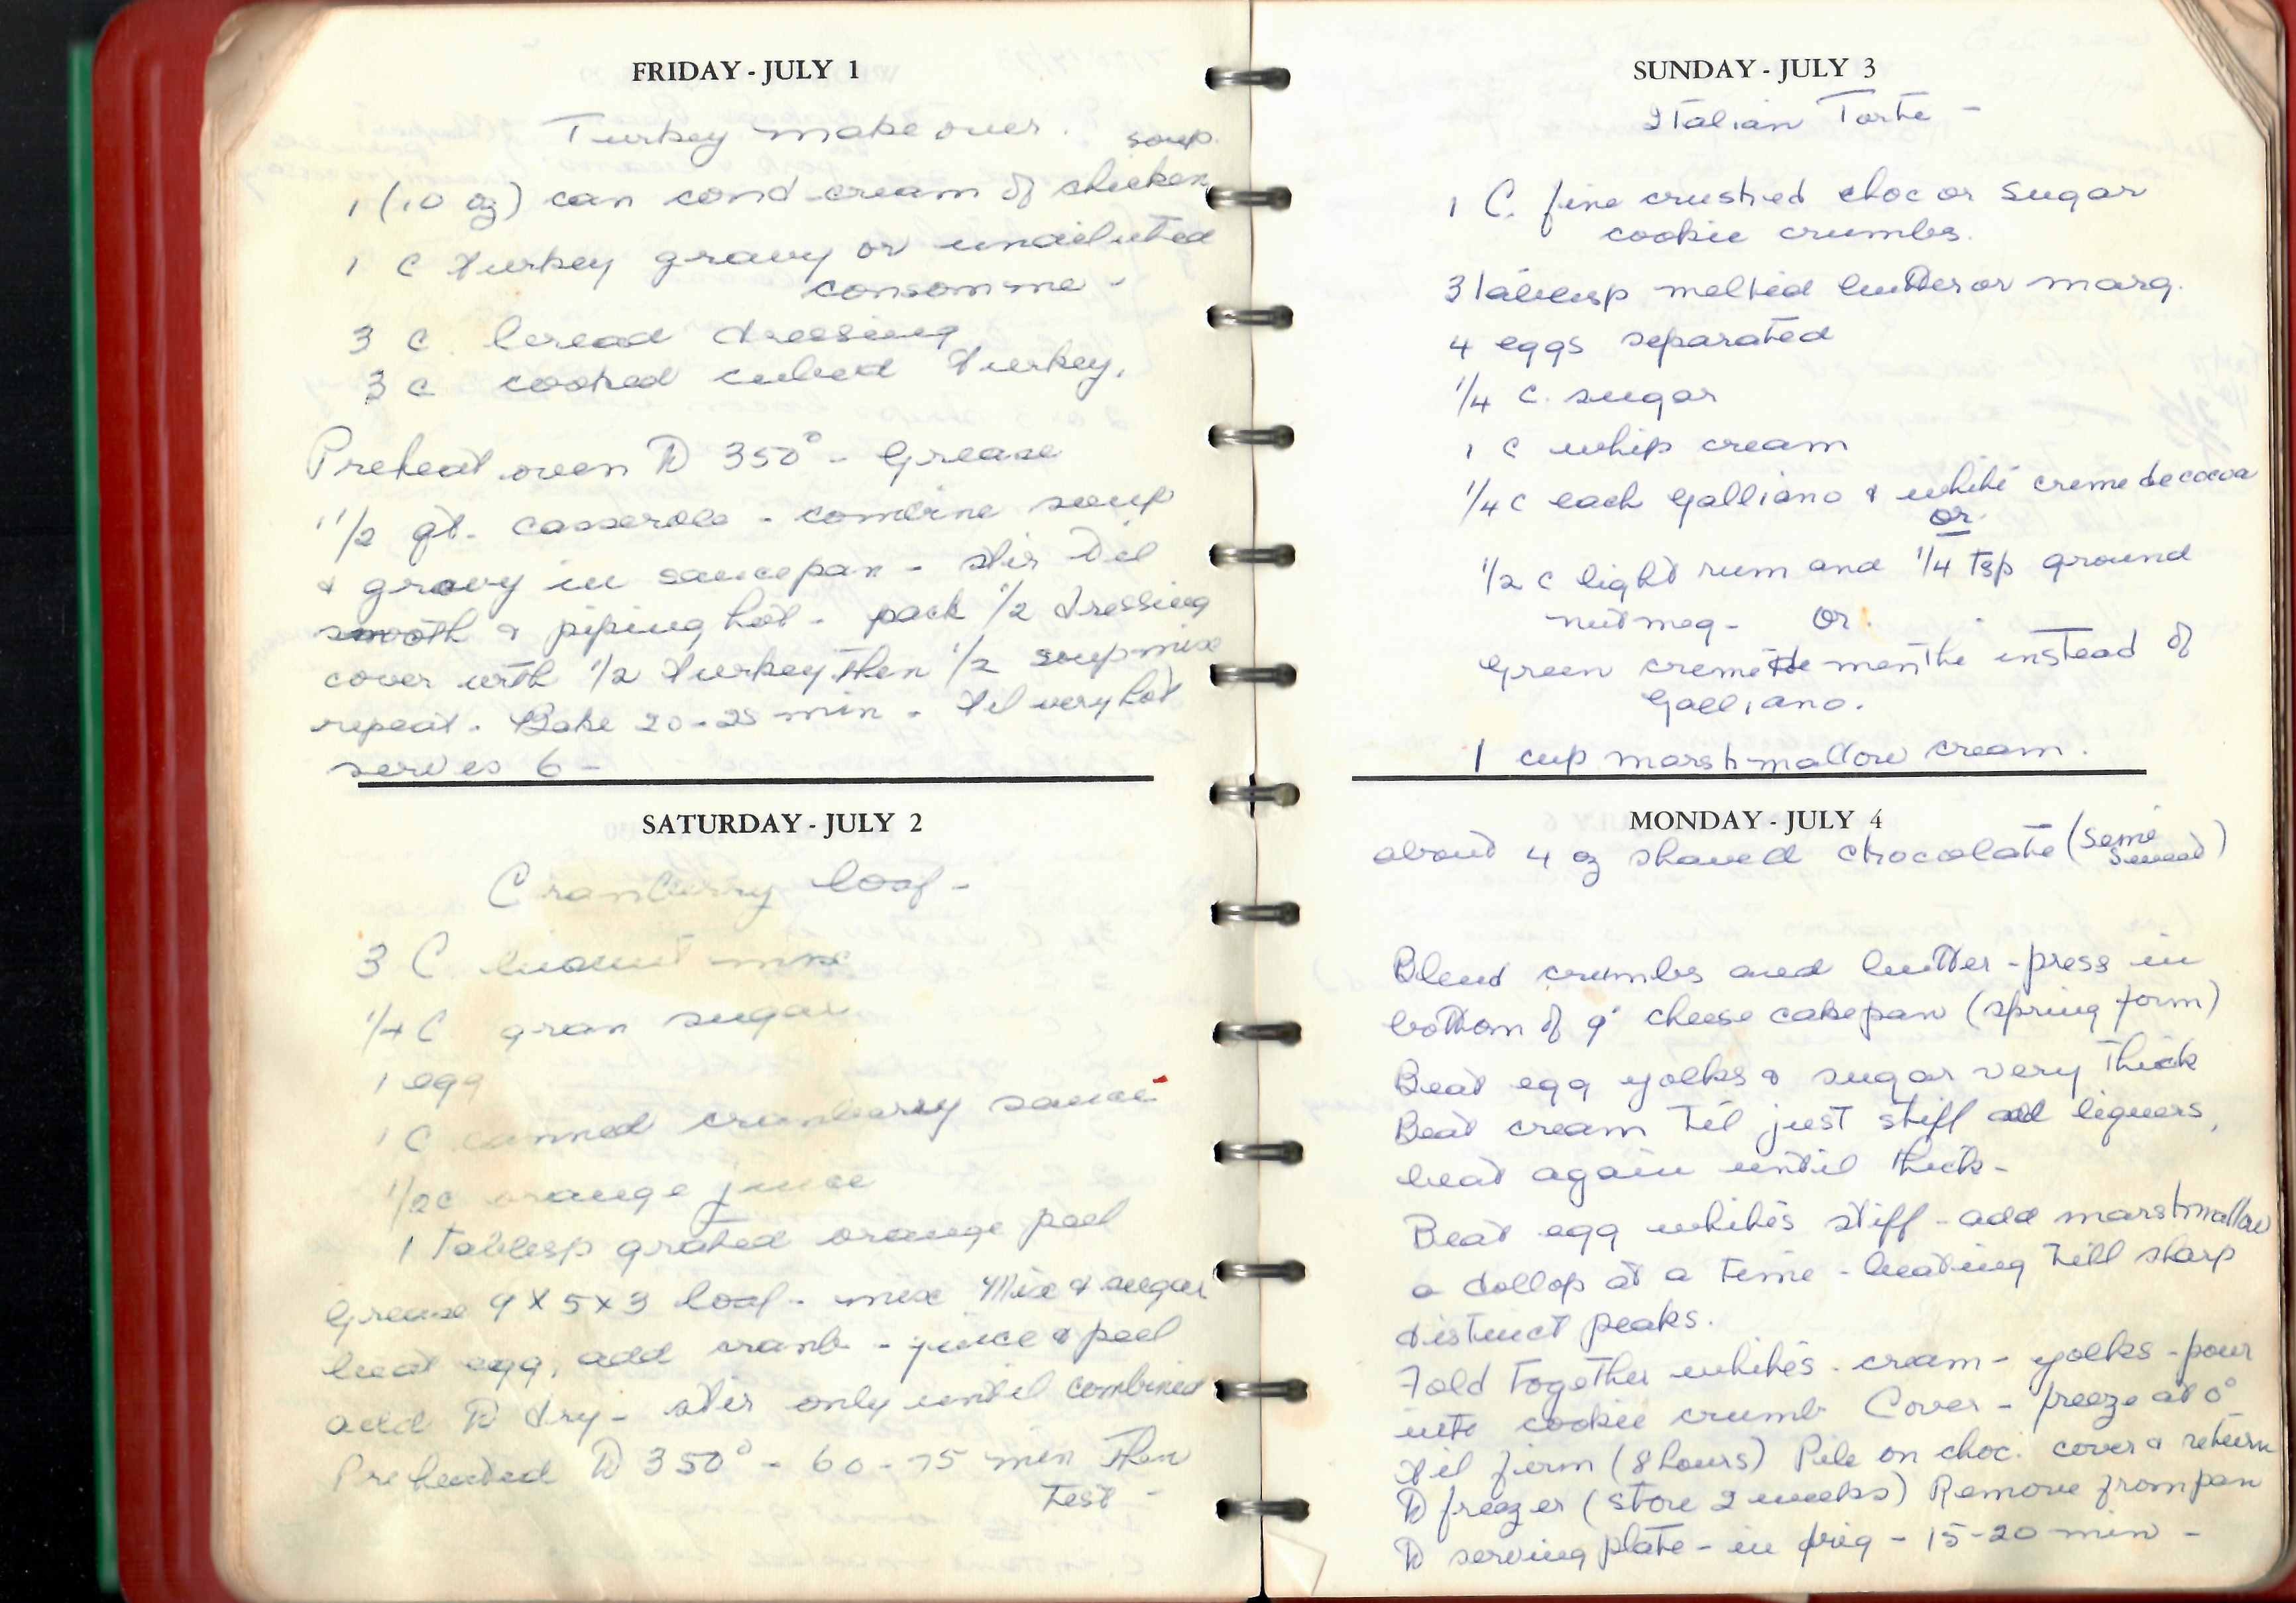 FRIDAY - JULY 1
Turkey make over.
soup.
1 (10 oz) can cond cream of chicken
1 C Turkey gravy or undiluted
consomme -
3 C. bread dressing
3 C cooked cubed Turkey.
Preheat oven to 350° - Grease
1 1/2 qt. casserole - combine soup
& gravy in saucepan - stir til
smooth & piping hot - pack 1/2 dressing
cover with 1/2 Turkey then 1/2 soup mix
repeat. Bake 20-25 min - til very hot
serves 6 -
SATURDAY - JULY 2
Cranberry loaf -
3 C. biscuit mix
1/4 C gran sugar
1 egg
1 C canned cranberry sauce
1/2 c orange juice
1 Tablesp grated orange peel
Grease 9 x 5 x 3 loaf - mix Mix & sugar
beat egg, add cranb - juice & peel
add to dry - stir only until combined
Preheated to 350° - 60-75 min Then
Test -
SUNDAY - JULY 3
Italian Torte -
1 C. fine crushed choc or sugar
cookie crumbs.
3 Tablesp melted butter or marg.
4 eggs separated
1/4 C. sugar
1 C whip cream
1/4 C each Galliano & white creme de cocoa
or
1/2 C light rum and 1/4 Tsp ground
nutmeg - or
Green creme de menthe instead of
Galliano.
1 cup marshmallow cream.
MONDAY - JULY 4
about 4 oz shaved chocolate (semi
sweet)
Blend crumbs and butter - press in
bottom of 9" cheese cakepan (spring form)
Beat egg yolks & sugar very thick
Beat cream til just stiff add liquers,
beat again until thick -
Beat egg whites stiff - add marshmallow
a dollop at a time - beating till sharp
distinct peaks.
Fold together whites - cream - yolks - pour
into cookie crumb Cover - freeze at 0°
til firm (8 hours) Pile on choc. cover & return
to freezer (store 2 weeks) Remove from pan
to serving plate - in frig - 15-20 min -